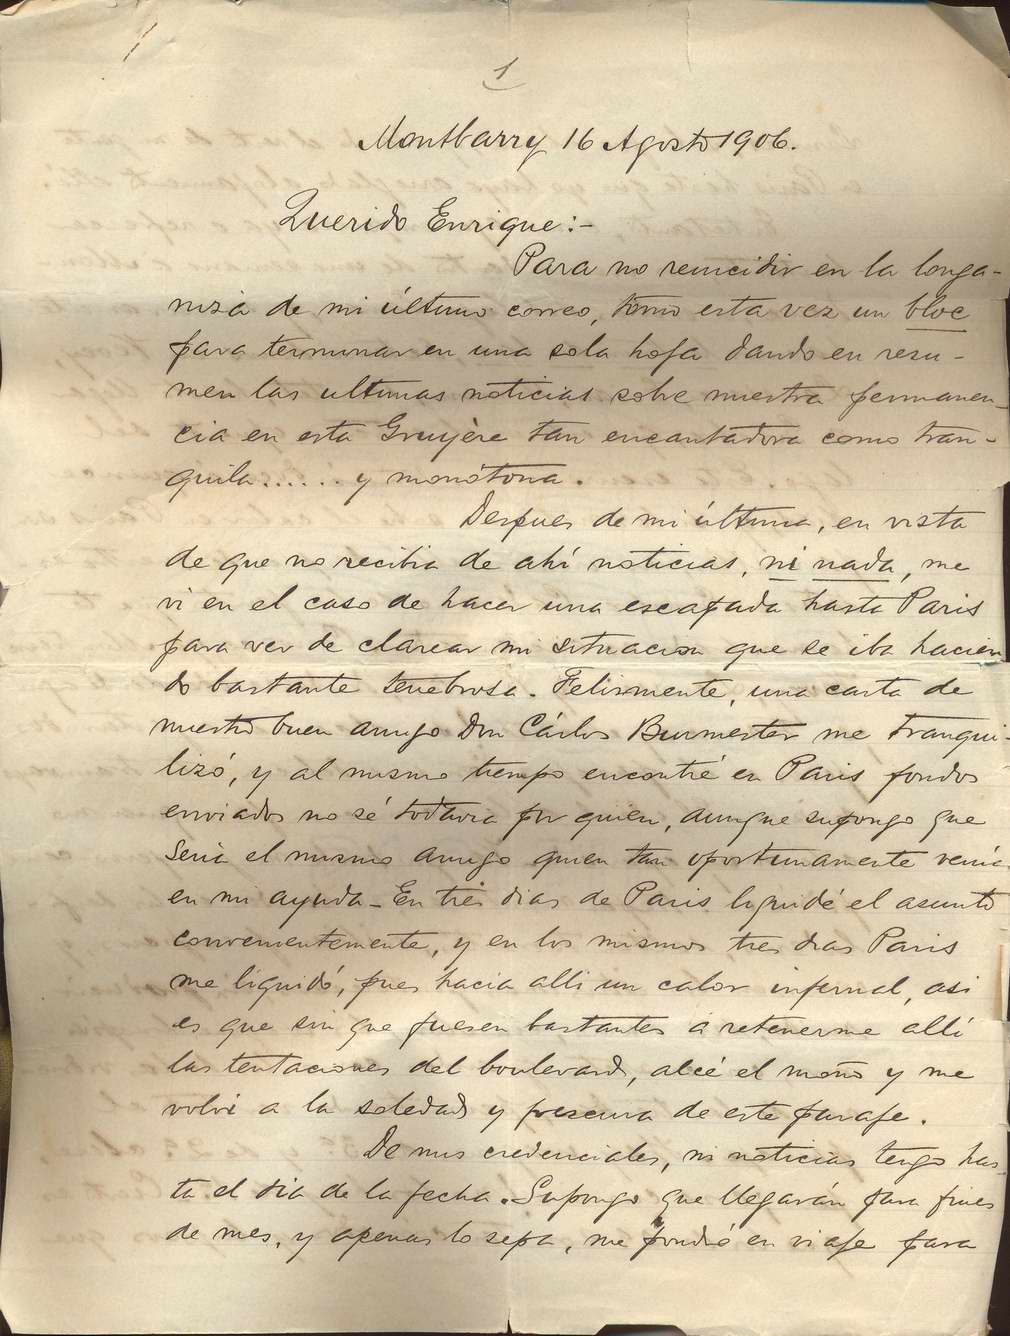 1
Montbarry 16 Agosto 1906.
Querido Enrique:-
Para no reincidir en la longa-
niza de mi último correo, tomo esta vez un bloc
para terminar en una sola hoja dando en resu-
men las ultimas noticias sobre nuestra permanen-
cia en esta Gruyère tan encantadora como tran-
quila...... y monótona.
Despues de mi última, en vista
de que no recibia de ahí noticias, ni nada, me
vi en el caso de hacer una escapada hasta Paris
para ver de clarear mi situacion que se iba hacien
do bastante tenebrosa. Felizmente, una carta de
nuestro buen amigo Don Cárlos Burmester me tranqui-
lizó, y al mismo tiempo encontré en Paris fondos
enviados no sé todavia por quien, aunque supongo que
seria el mismo amigo quien tan oportunamente venia
en mi ayuda - En tres dias de Paris liquidé el asunto
convenientemente, y en los mismos tres dias Paris
me liquidó, pues hacia alli un calor infernal, asi
es que sin que fuesen bastantes á retenerme allí
las tentaciones del boulevard, alcé el moño y me
volví a la soledad y frescura de este paraje.
De mis credenciales, ni noticias tengo has-
ta el dia de la fecha. Supongo que llegarán para fines
de mes, y apenas lo sepa, me pondré en viaje para